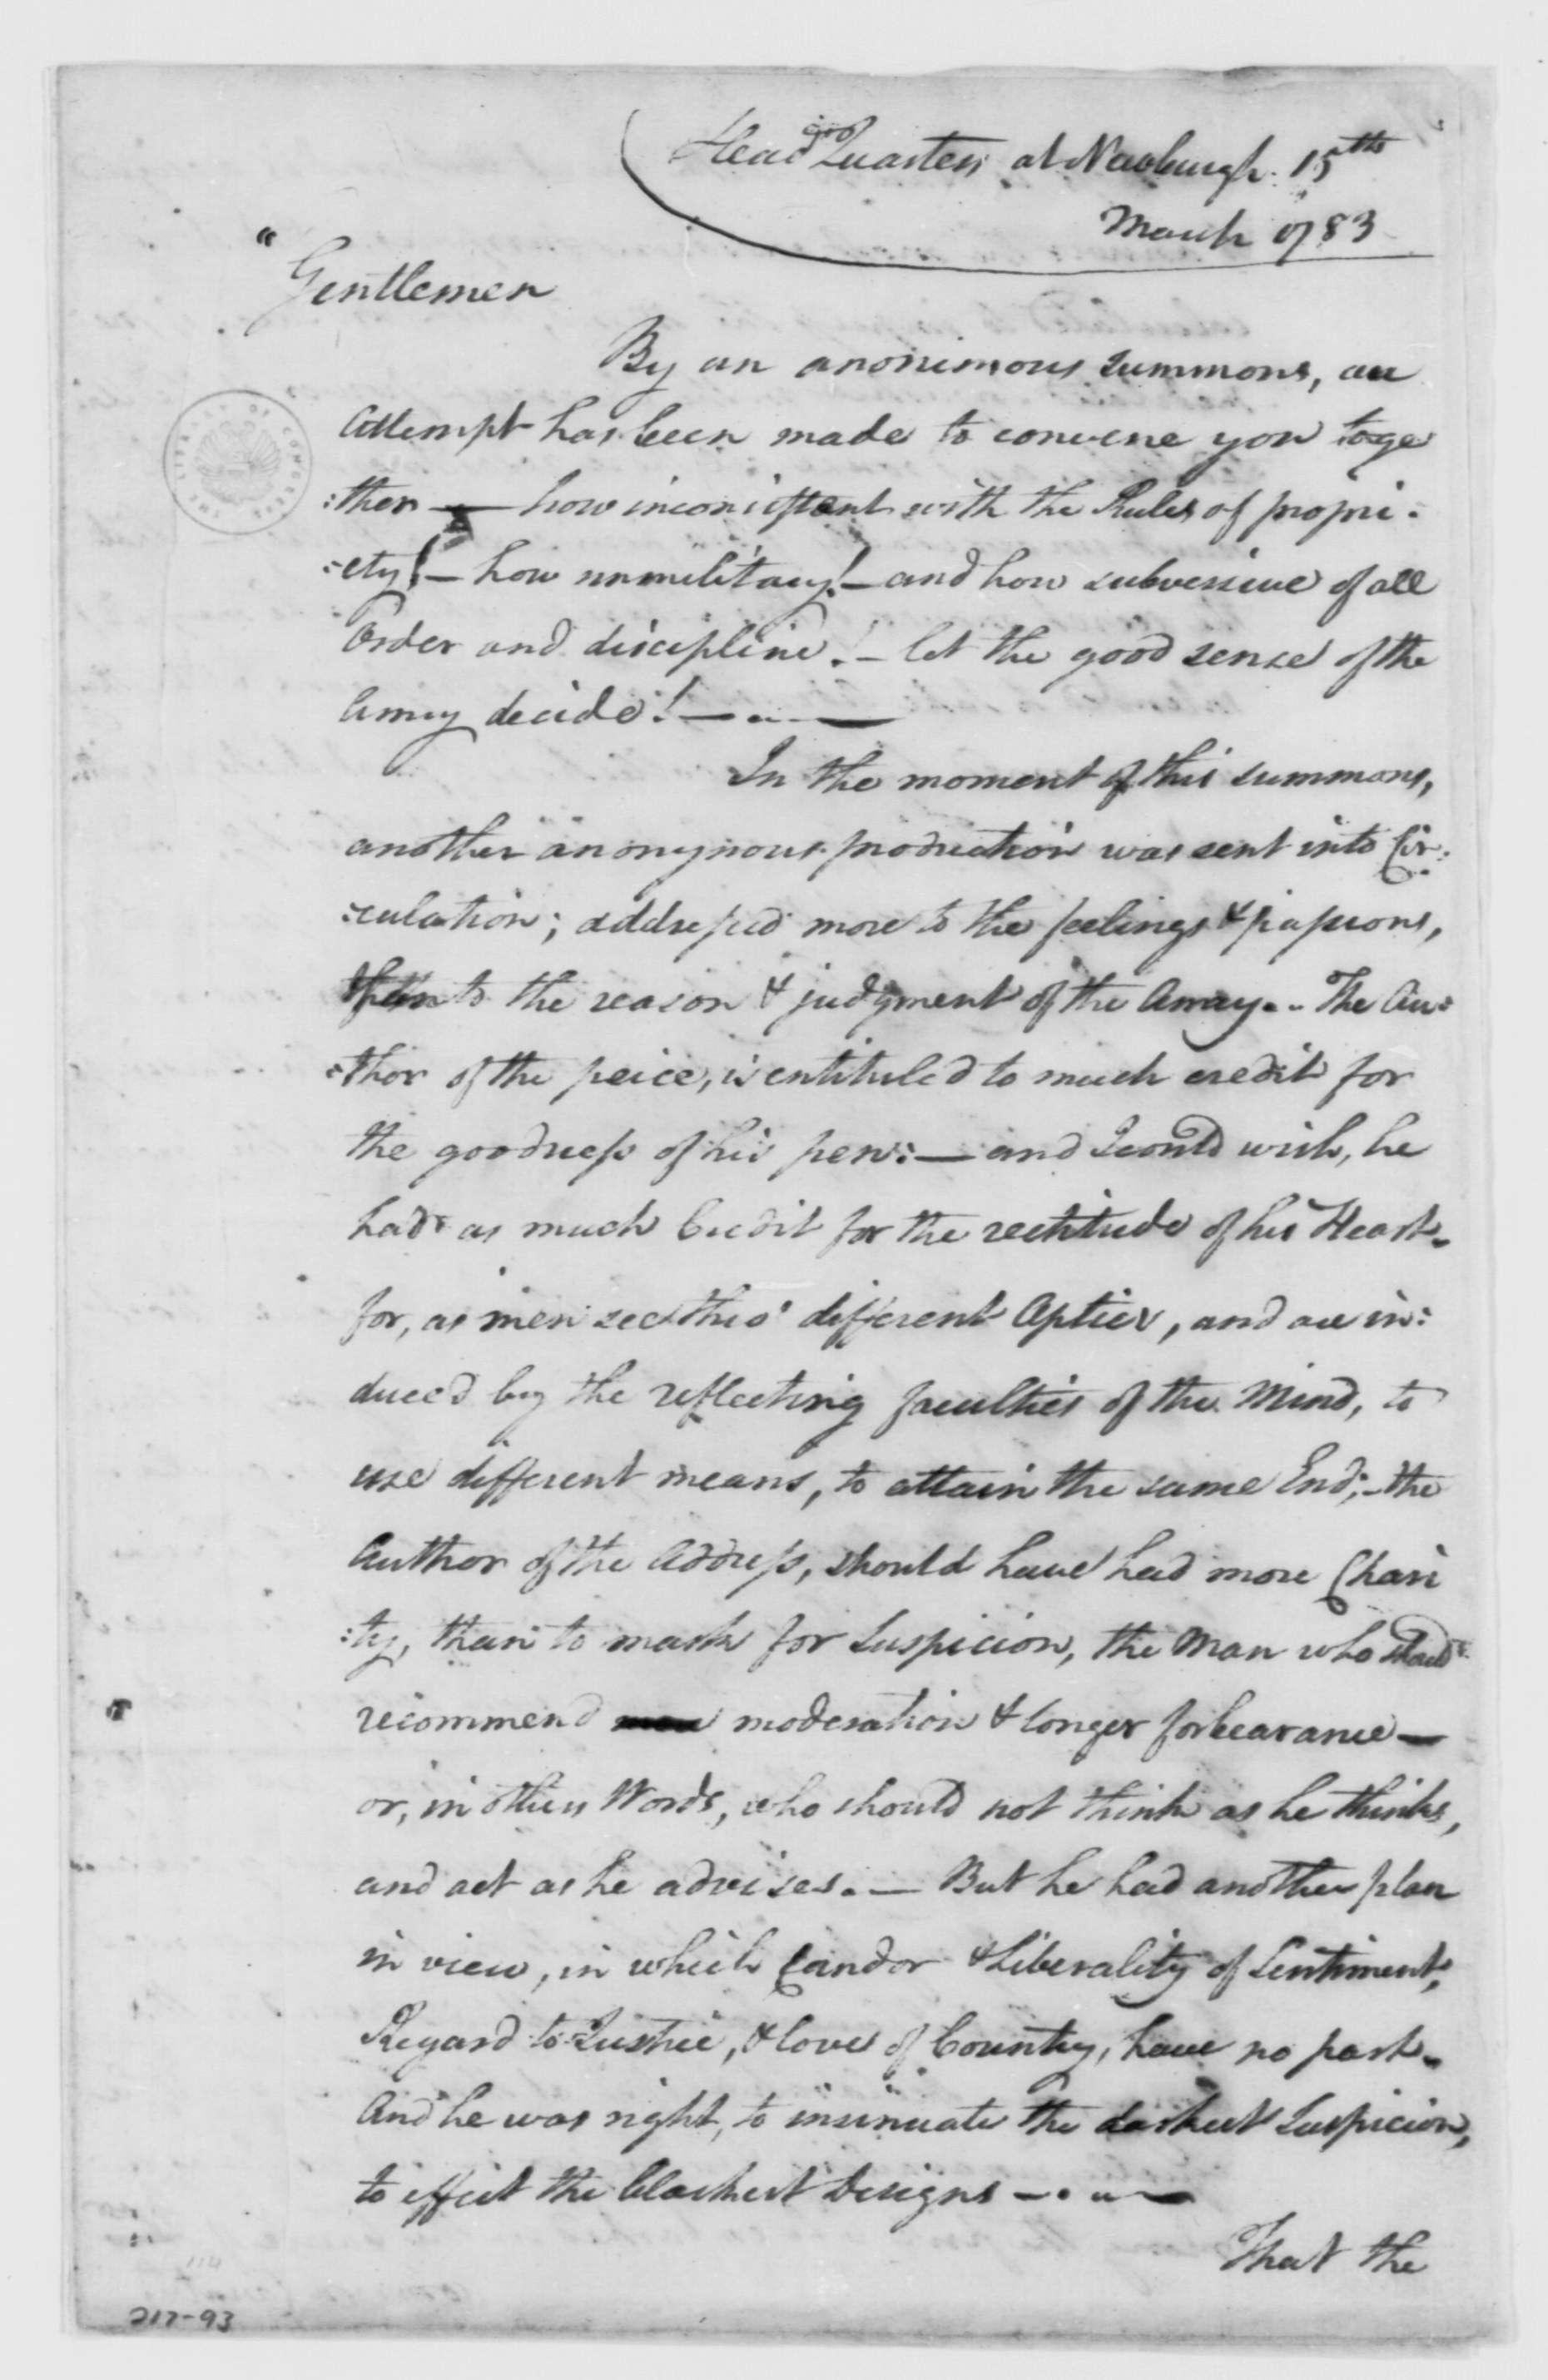 Head Quarters at Newburgh. 15th
March 1783
"Gentlemen
By an anonimous summons, an
attempt has been made to convene you toge
:ther — how inconsistent with the Rules of propri-
:ety! — how unmilitary! — and how subversive of all
Order and discipline! — let the good sense of the
Army decide! —
In the moment of this summons,
another anonymous production was sent into Cir:
:culation; addressed more to the feelings & passions,
than to the reason & judgment of the Army. - The Au:
:thor of the peice, is entituled to much credit for
the goodness of his pen: — and I could wish, he
had as much Credit for the rectitude of his Heart -
for, as men see thro' different Optics, and are in:
duced by the reflecting faculties of the Mind, to
use different means, to attain the same End; - the
Author of the Address, should have had more Chari
:ty, than to mark for Suspicion, the Man who should
recommend moderation & longer forbearance —
or, in other Words, who should not think as he thinks,
and act as he advises. — But he had another plan
in view, in which Candor & Liberality of Sentiment,
Regard to Justice, & love of Country, have no part -
And he was right, to insinuate the darkest Suspicion,
to effect the blackest Designs —
That the
THE LIBRARY OF CONGRESS
217-93